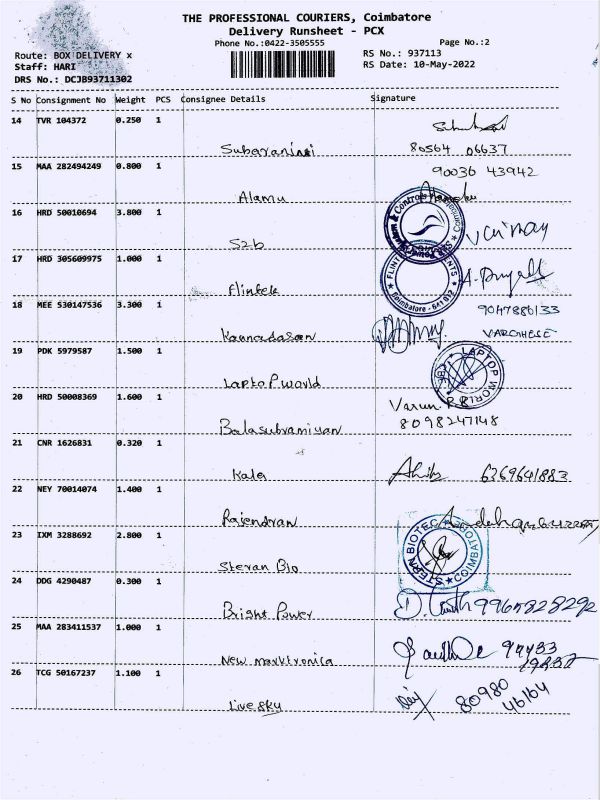 THE PROFESSIONAL COURIERS, Coimbatore
Delivery Runsheet - PCX
Phone No.:0422-3505555
Page No.:2
Route: BOX DELIVERY x
RS No.: 937113
Staff: HARI
RS Date: 10-May-2022
DRS No.: DCJB93711302
S No Consignment No Weight PCS Consignee Details Signature
14 TVR 104372 0.250 1
80564 06637
15 MAA 282494249 0.800 1
90036 43942
Alamu
16 HRD 50010694 3.800 1
17 HRD 305609975 1.000 1
Flintek
18 MEE 530147536 3.300 1
9047886133
Kannadasan
VARGHESE
19 PDK 5979587 1.500 1
LAPTOP WORLD
Laptop world
20 HRD 50008369 1.600 1
Varun. R B
Balasubramiyan
8098247148
21 CNR 1626831 0.320 1
Kala
6369641883
22 NEY 70014074 1.400 1
Rajendran
23 IXM 3288692 2.800 1
STERN BIOTEC
COIMBATORE
Steran Bio
24 DDG 4290487 0.300 1
Bright Power
9965828292
25 MAA 283411537 1.000 1
New marktronica
26 TCG 50167237 1.100 1
80980
46164
Live sky